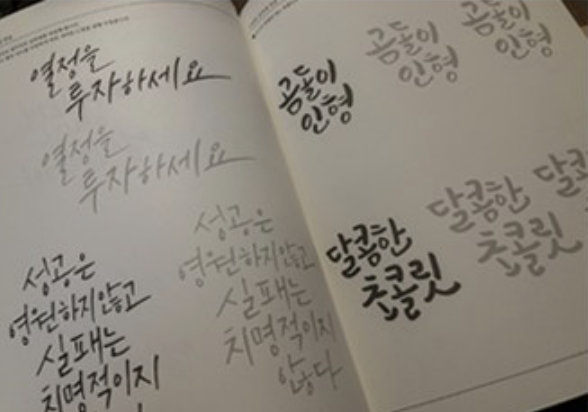 열정을
투자하세요
열정을
투자하세요
성공은
영원하지않고
실패는
치명적이지
성공은
영원하지않고
실패는
치명적이지
않다
곰돌이
인형
곰돌이
인형
곰돌이
인형
달콤한
초콜릿
달콤한
초콜릿